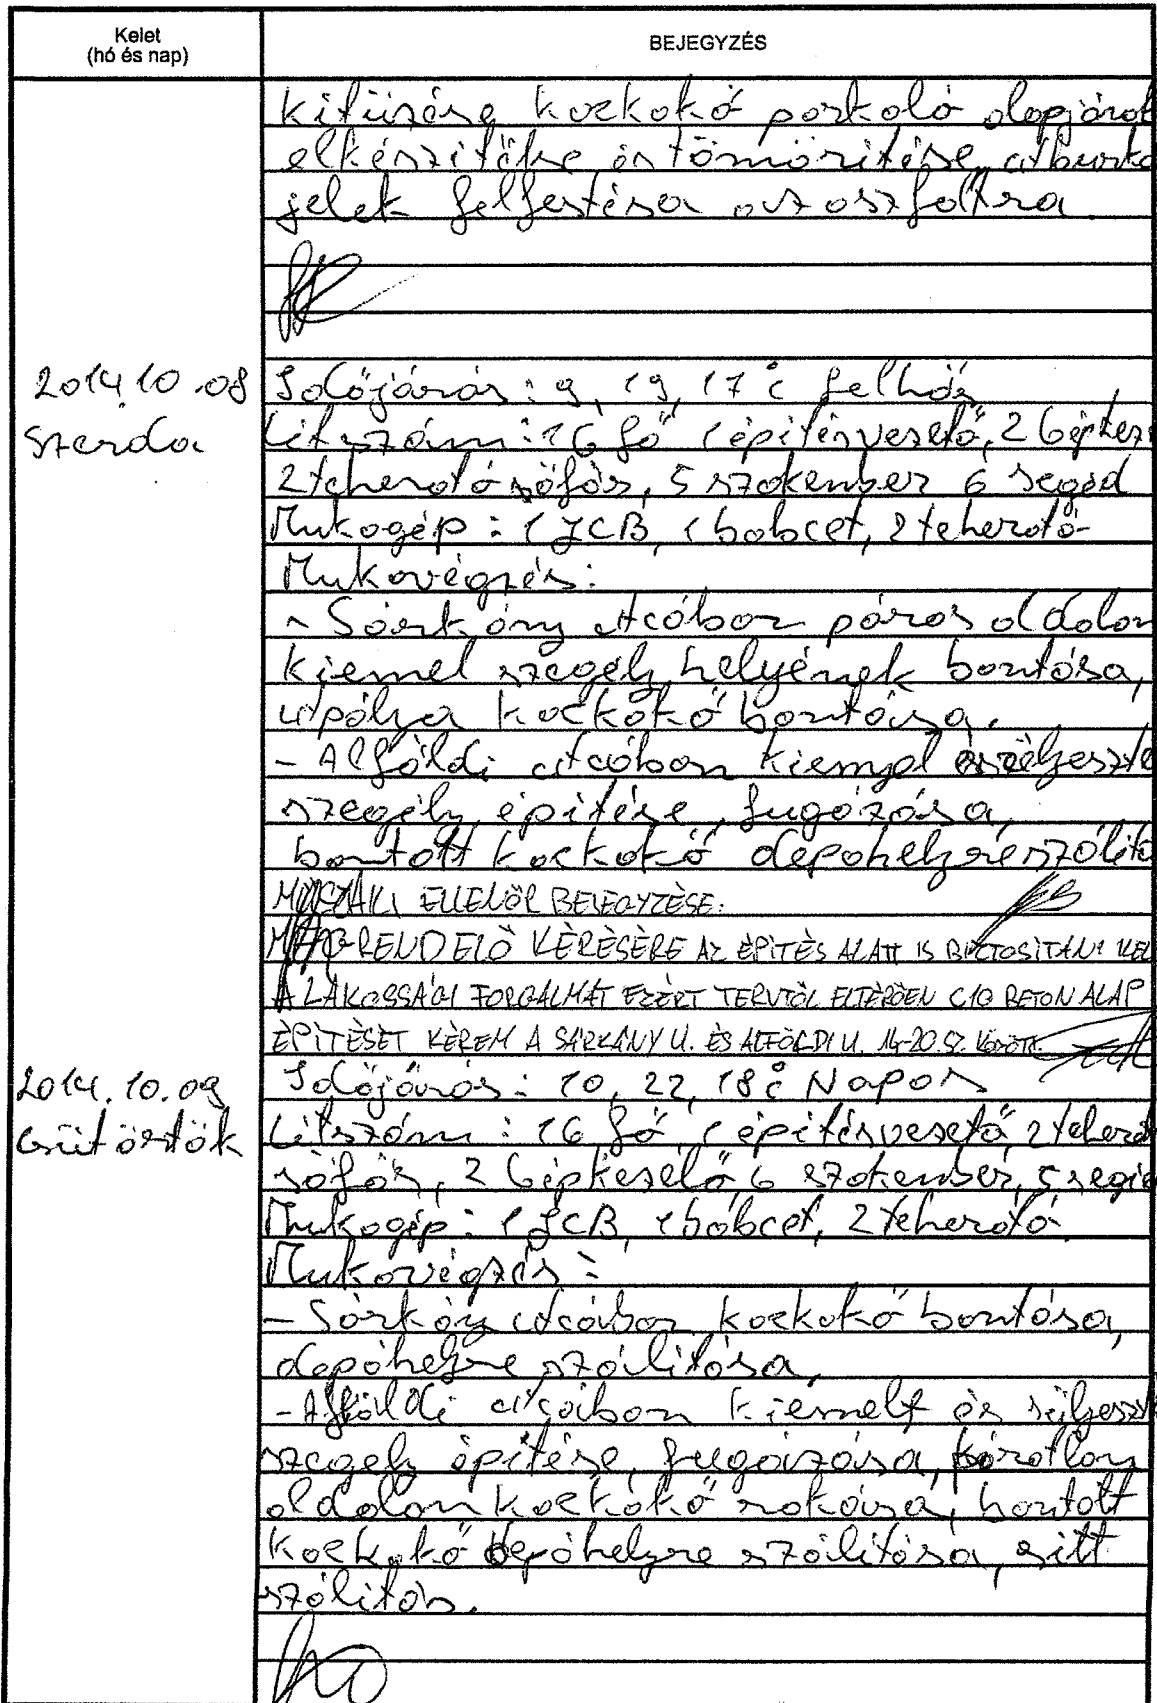 Kelet
(hó és nap)
BEJEGYZÉS
kitűzése kockakő parkoló alapjának
elkészítése és tömörítése, útburko
jelek felfestése az aszfaltra.
2014.10.08
Szerda
Időjárás: 9, 19, 17 °C felhős
Létszám: 16 fő 1 építésvezető, 2 gépkez
2 teherautó sofőr, 5 szakember 6 segéd
Munkagép: 1 JCB, 1 bobcat, 2 teherautó
Munkavégzés:
- Sárkány utcában páros oldalon
kiemel szegély helyének bontása,
útpálya kockakő bontása.
- Alföldi utcában kiemel és süllyeszte
szegély építése, fugázása,
bontott kockakő depohelyre szállítá
MŰSZAKI ELLENŐR BEJEGYZÉSE:
MEGRENDELŐ KÉRÉSÉRE AZ ÉPÍTÉS ALATT IS BIZTOSÍTANI KEL
A LAKOSSÁGI FORGALMAT EZÉRT TERVTŐL ELTÉRŐEN C10 BETON ALAP
ÉPÍTÉSÉT KÉREM A SÁRKÁNY U. ÉS ALFÖLDI U. 14-20. SZ. KÖZÖTT.
2014.10.09
Csütörtök
Időjárás: 10, 22, 18 °C Napos
Létszám: 16 fő, 1 építésvezető, 2 teheraut
sofőr, 2 gépkezelő, 6 szakember, 5 segéd
Munkagép: 1 JCB, 1 bobcat, 2 teherautó.
Munkavégzés:
- Sárkány utcában kockakő bontása,
depóhelyre szállítása,
- Alföldi utcában kiemelt és süllyeszt
szegély építése, fugázása, páratlan
oldalon kockakő rakása, bontott
kockakő depóhelyre szállítása, sitt
szállítás.